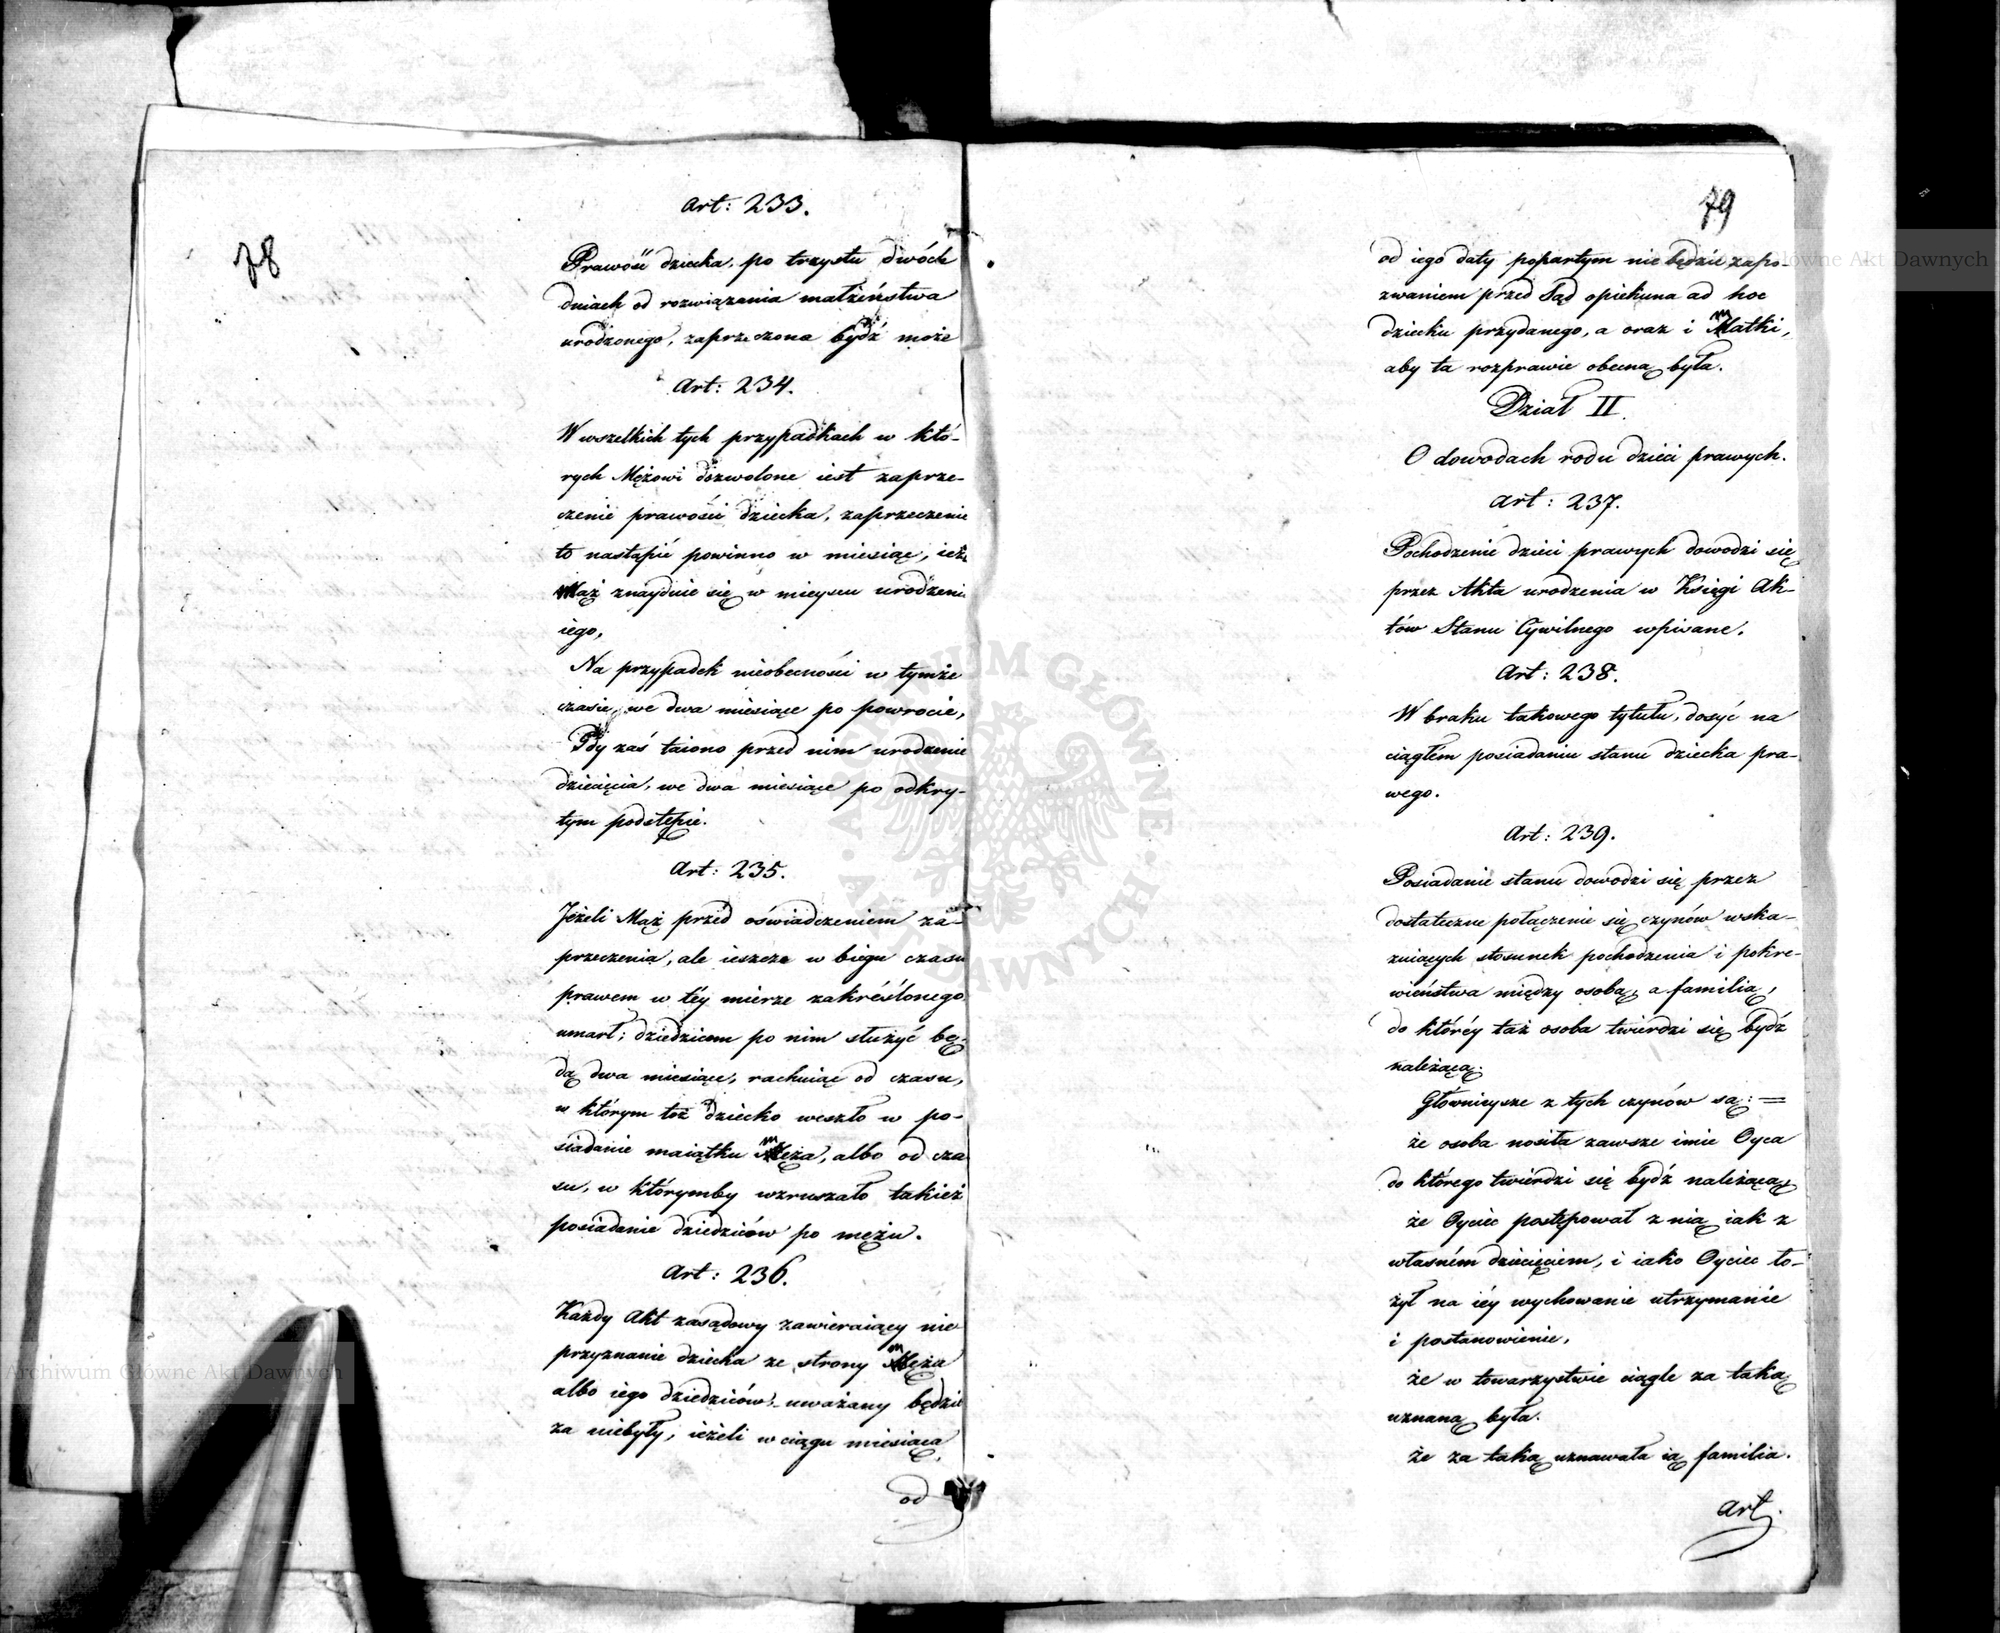 78
Art: 233.
Prawość dziecka, po trzystu dwóch
dniach od rozwiązania małżeństwa
urodzonego, zaprzeczona bydź może
Art: 234.
W wszelkich tych przypadkach w któ-
rych Mężowi dozwolone iest zaprze-
czenie prawości dziecka, zaprzeczenie
to nastąpić powinno w miesiąc, ieże
Mąż znayduie się w mieyscu urodzeni
iego,
Na przypadek nieobecności w tymże
czasie, we dwa miesiące po powrocie,
Gdy zaś taiono przed nim urodzenie
dziecięcia, we dwa miesiące po odkry-
tym podstępie.
Art: 235.
Jeżeli Mąż przed oświadczeniem za-
przeczenia, ale ieszcze w biegu czasu
prawem w téy mierze zakréślonego
umarł; dziedzicom po nim służyć bę-
dą dwa miesiące, rachuiąc od czasu,
w którym toż dziecko weszło w po-
siadanie maiątku męża, albo od cza
su, w którymby wzruszało takież
posiadanie dziedziców po mężu.
Art: 236.
Każdy Akt zasądowy zawieraiący nie
przyznanie dziecka ze strony męża
albo iego dziedziców, uważany będzie
za niebyły, ieżeli w ciągu miesiąca
od
79
od iego daty popartym nie będzie zapo-
zwaniem przed Sąd opiekuna ad hoc
dziecku przydanego, a oraz i matki,
aby ta rozprawie obecną była.
Dział II.
O dowodach rodu dzieci prawych.
Art: 237.
Pochodzenie dzieci prawych dowodzi się
przez Akta urodzenia w Księgi Ak-
tów Stanu Cywilnego wpisane.
Art: 238.
W braku takowego tytułu, dosyć na
ciągłém posiadaniu stanu dziecka pra-
wego.
Art: 239.
Posiadanie stanu dowodzi się przez
dostateczne połączenie się czynów wska-
zuiących stosunek pochodzenia i pokre-
wieństwa między osobą, a familią,
do któréy taż osoba twierdzi się bydź
należącą.
Głównieysze z tych czynów są: =
że osoba nosiła zawsze imie Oyca
do którego twierdzi się bydź należącą,
że Oyciec postępował z nią iak z
własném dziecięciem, i iako Oyciec ło-
żył na iéy wychowanie utrzymanie
i postanowienie,
że w towarzystwie ciągle za taką
uznaną była.
że za taką uznawała ią familia.
Art.
ARCHIWUM GŁÓWNE AKT DAWNYCH
Archiwum Główne Akt Dawnych
Główne Akt Dawnych